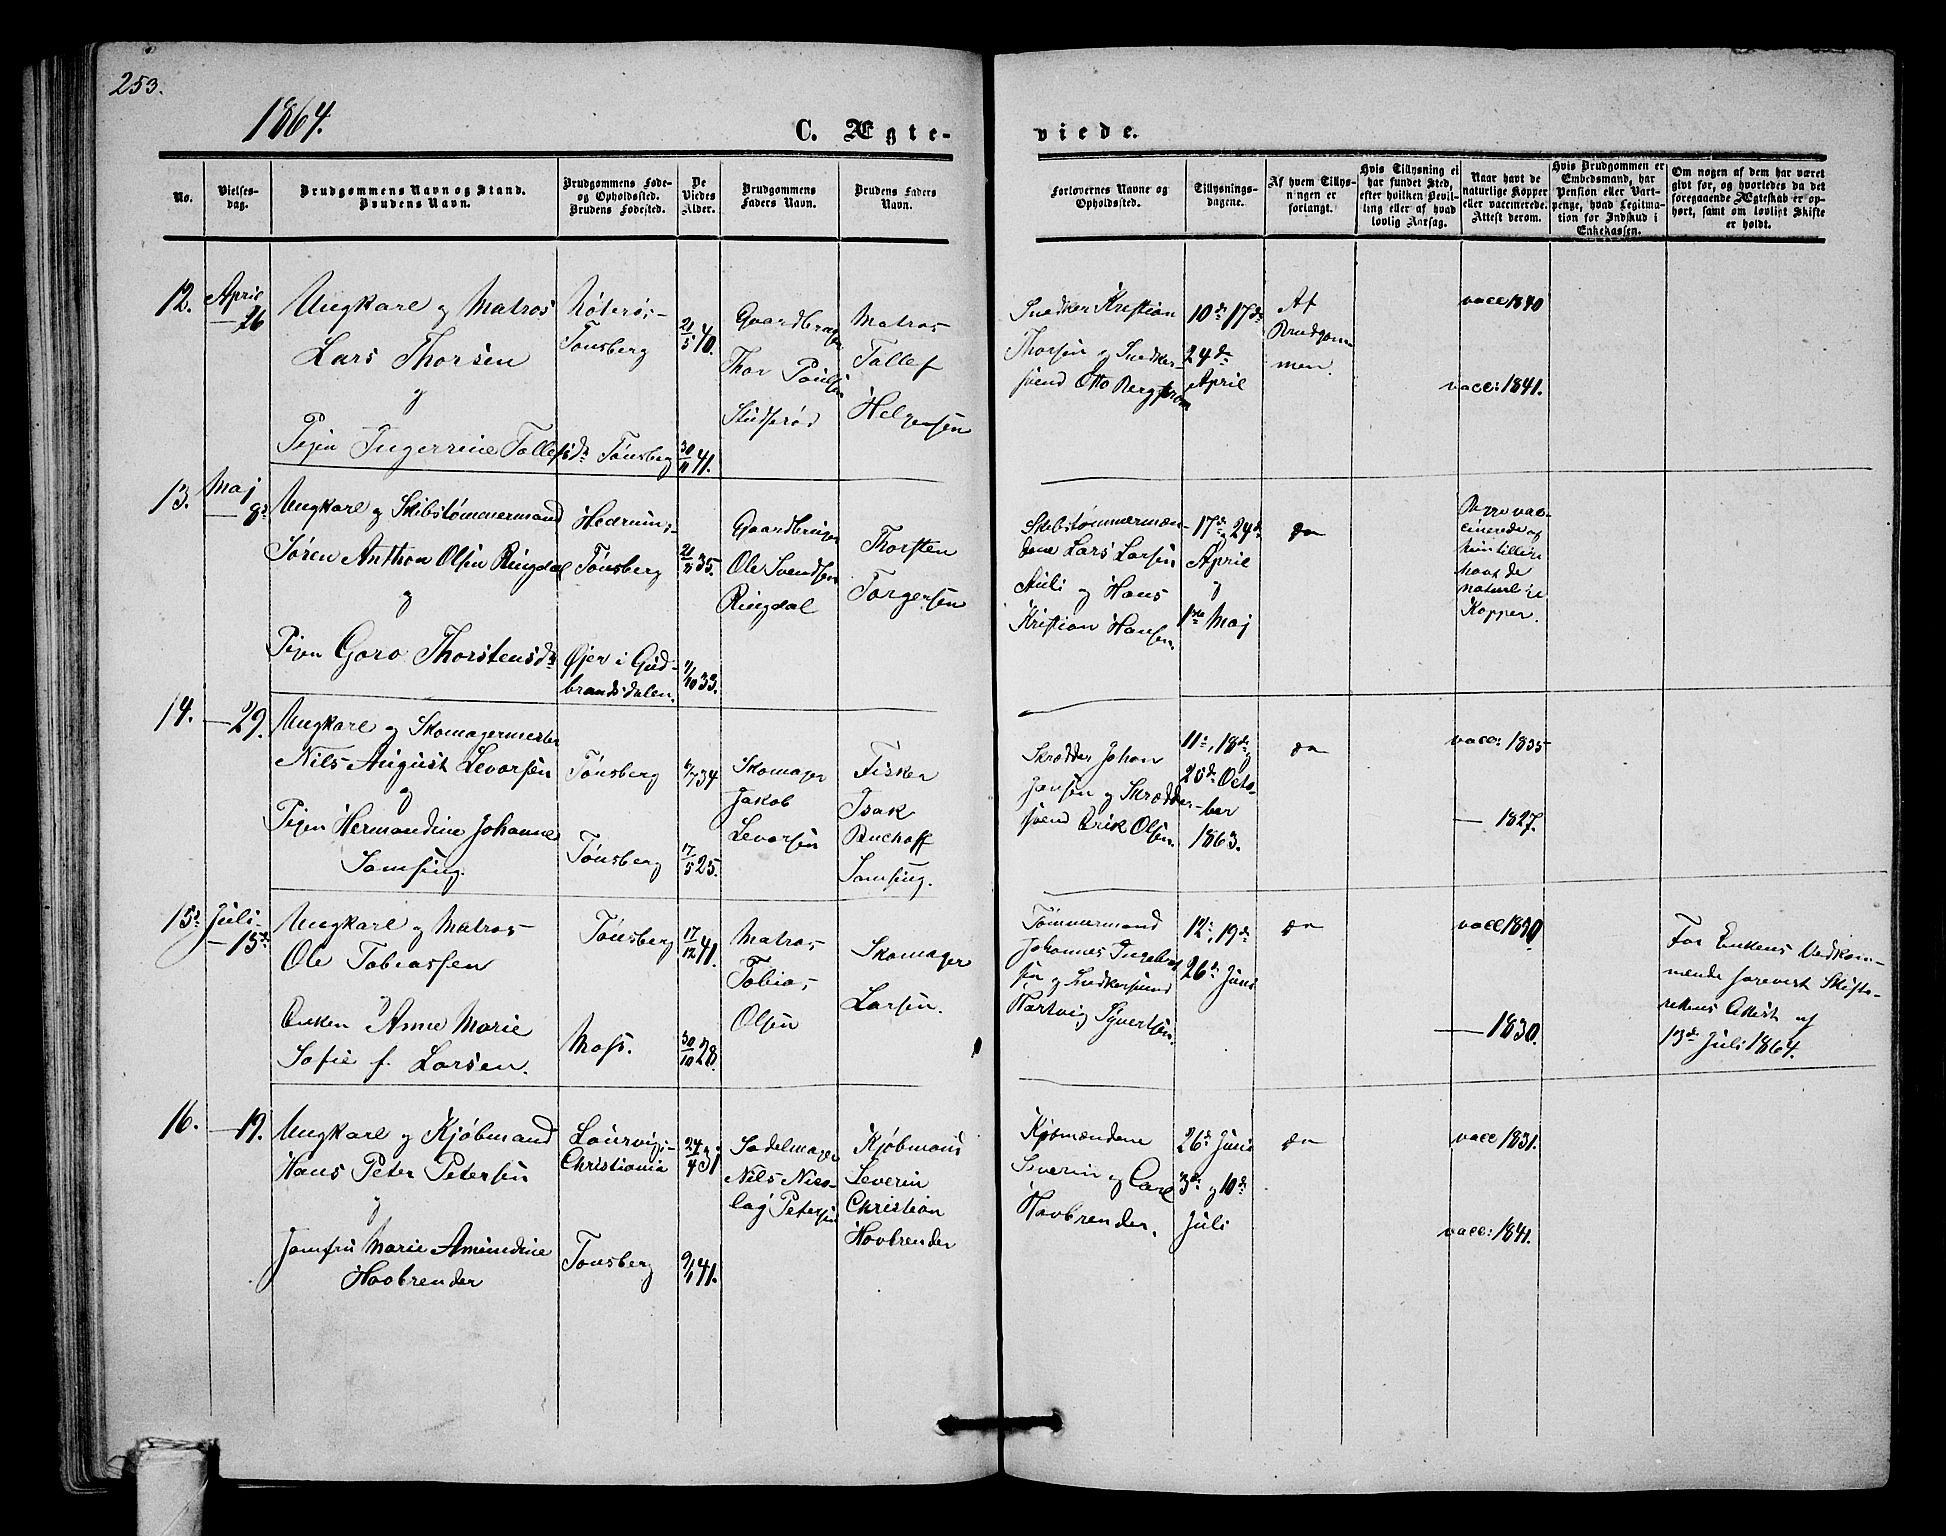 253.
1864.
C. Ægte-
viede.
No.
Vielses-
dag.
Brudgommens Navn og Stand.
Brudens Navn.
Brudgommens Føde-
og Opholdssted.
Brudens Fødested.
De
Viedes
Alder.
Brudgommens
Faders Navn.
Brudens Faders
Navn.
Forlovernes Navne og
Opholdsted.
Tillysnings-
dagene.
Af hvem Tillys-
ningen er
forlangt.
Hvis Tillysning ei
har fundet Sted,
efter hvilken Bevil-
ling eller af hvad
lovlig Aarsag.
Naar havt de
naturlige Kopper
eller vaccinerede.
Attest derom.
Hvis Brudgommen er
Embedsmand, har
Pension eller Vart-
penge, hvad Legitima-
tion for Indskud i
Enkekassen.
Om nogen af dem har været
gift før, og hvorledes da det
foregaaende Ægteskab er op-
hørt, samt om lovligt Skifte
er holdt.
12.
April
26
Ungkarl og Matros
Lars Thorsen
og
Pigen Ingerrine Tollefsdr
Nøterø,
Tønsberg
Tønsberg
21/5 40.
30/11 41.
Gaardbruger
Thor Poulsen
Matros
Tollef
Helgensen
Snedker Kristian
Thorsen og Snedker-
svend Otto Bergstrøm
10de 17de
24de
April
Af
Brudgom-
men.
vacc 1840
vacc: 1841.
13.
Maj
8de
Ungkarl og Skibstømmermand
Søren Anthon Olsen Ringdal
og
Pigen Goro Thorstensdr
Hedrum,
Tønsberg
Øjer i Gud-
brandsdalen.
35.
11/10 33.
Gaardbruger
Ole Svendsen
Ringdal
Thorsten
Torgersen
Skibstømmermæn-
dene Lars Larsen
og Hans
Kristian Hansen
17de 24de
April
og
1ste Maj
do
Begge vac-
cinerede og
havt de
naturlige
Kopper.
14.
— 29.
Ungkarl og Skomagermester
Nils August Levorsen
og
Pigen Hermandine Johanne
Samsing.
Tønsberg
Tønsberg
6/7 34
17/5 25.
Skomager
Jakob
Levorsen
Fisker
Isak
Buchoff
Samsing.
Skrædder Johan
Jensen og Skrædder-
svend Erik Olsen.
11te, 18de og
25de Octo-
ber
1863.
do
vacc: 1835
— 1827.
15de
Juli
— 15de
Ungkarl og Matros
Ole Tobiassen
og
Enken Anne Marie
Sofie f. Larsen.
Tønsberg
Moss.
17/12 41.
30/10 28.
Matros
Tobias
Olsen
Skomager
Larsen.
Tømmermand
Johannes Ingebret
sen og Snedkersvend
Hartvig Syvertsen.
12te, 19de
26de Juni
do
— 1830.
For Enkens Vedkom-
mende forevist Skifte-
rettens Attest af
13de Juli 1864.
16.
— 19.
Ungkarl og Kjøbmand
Hans Peter Petersen
og
Jomfru Marie Amundine
Hovbrender
Laurvig,
Christiania
Tønsberg
24/4 31
9/1 41.
Sadelmager
Nils Nico-
laj Petersen
Kjøbmand
Severin
Christian
Hovbrender
Kjøbmændene
Severin og Carl
Hovbrender.
26de Juni
3de og 10de
Juli
do
vacc 1831.
vacc: 1841.